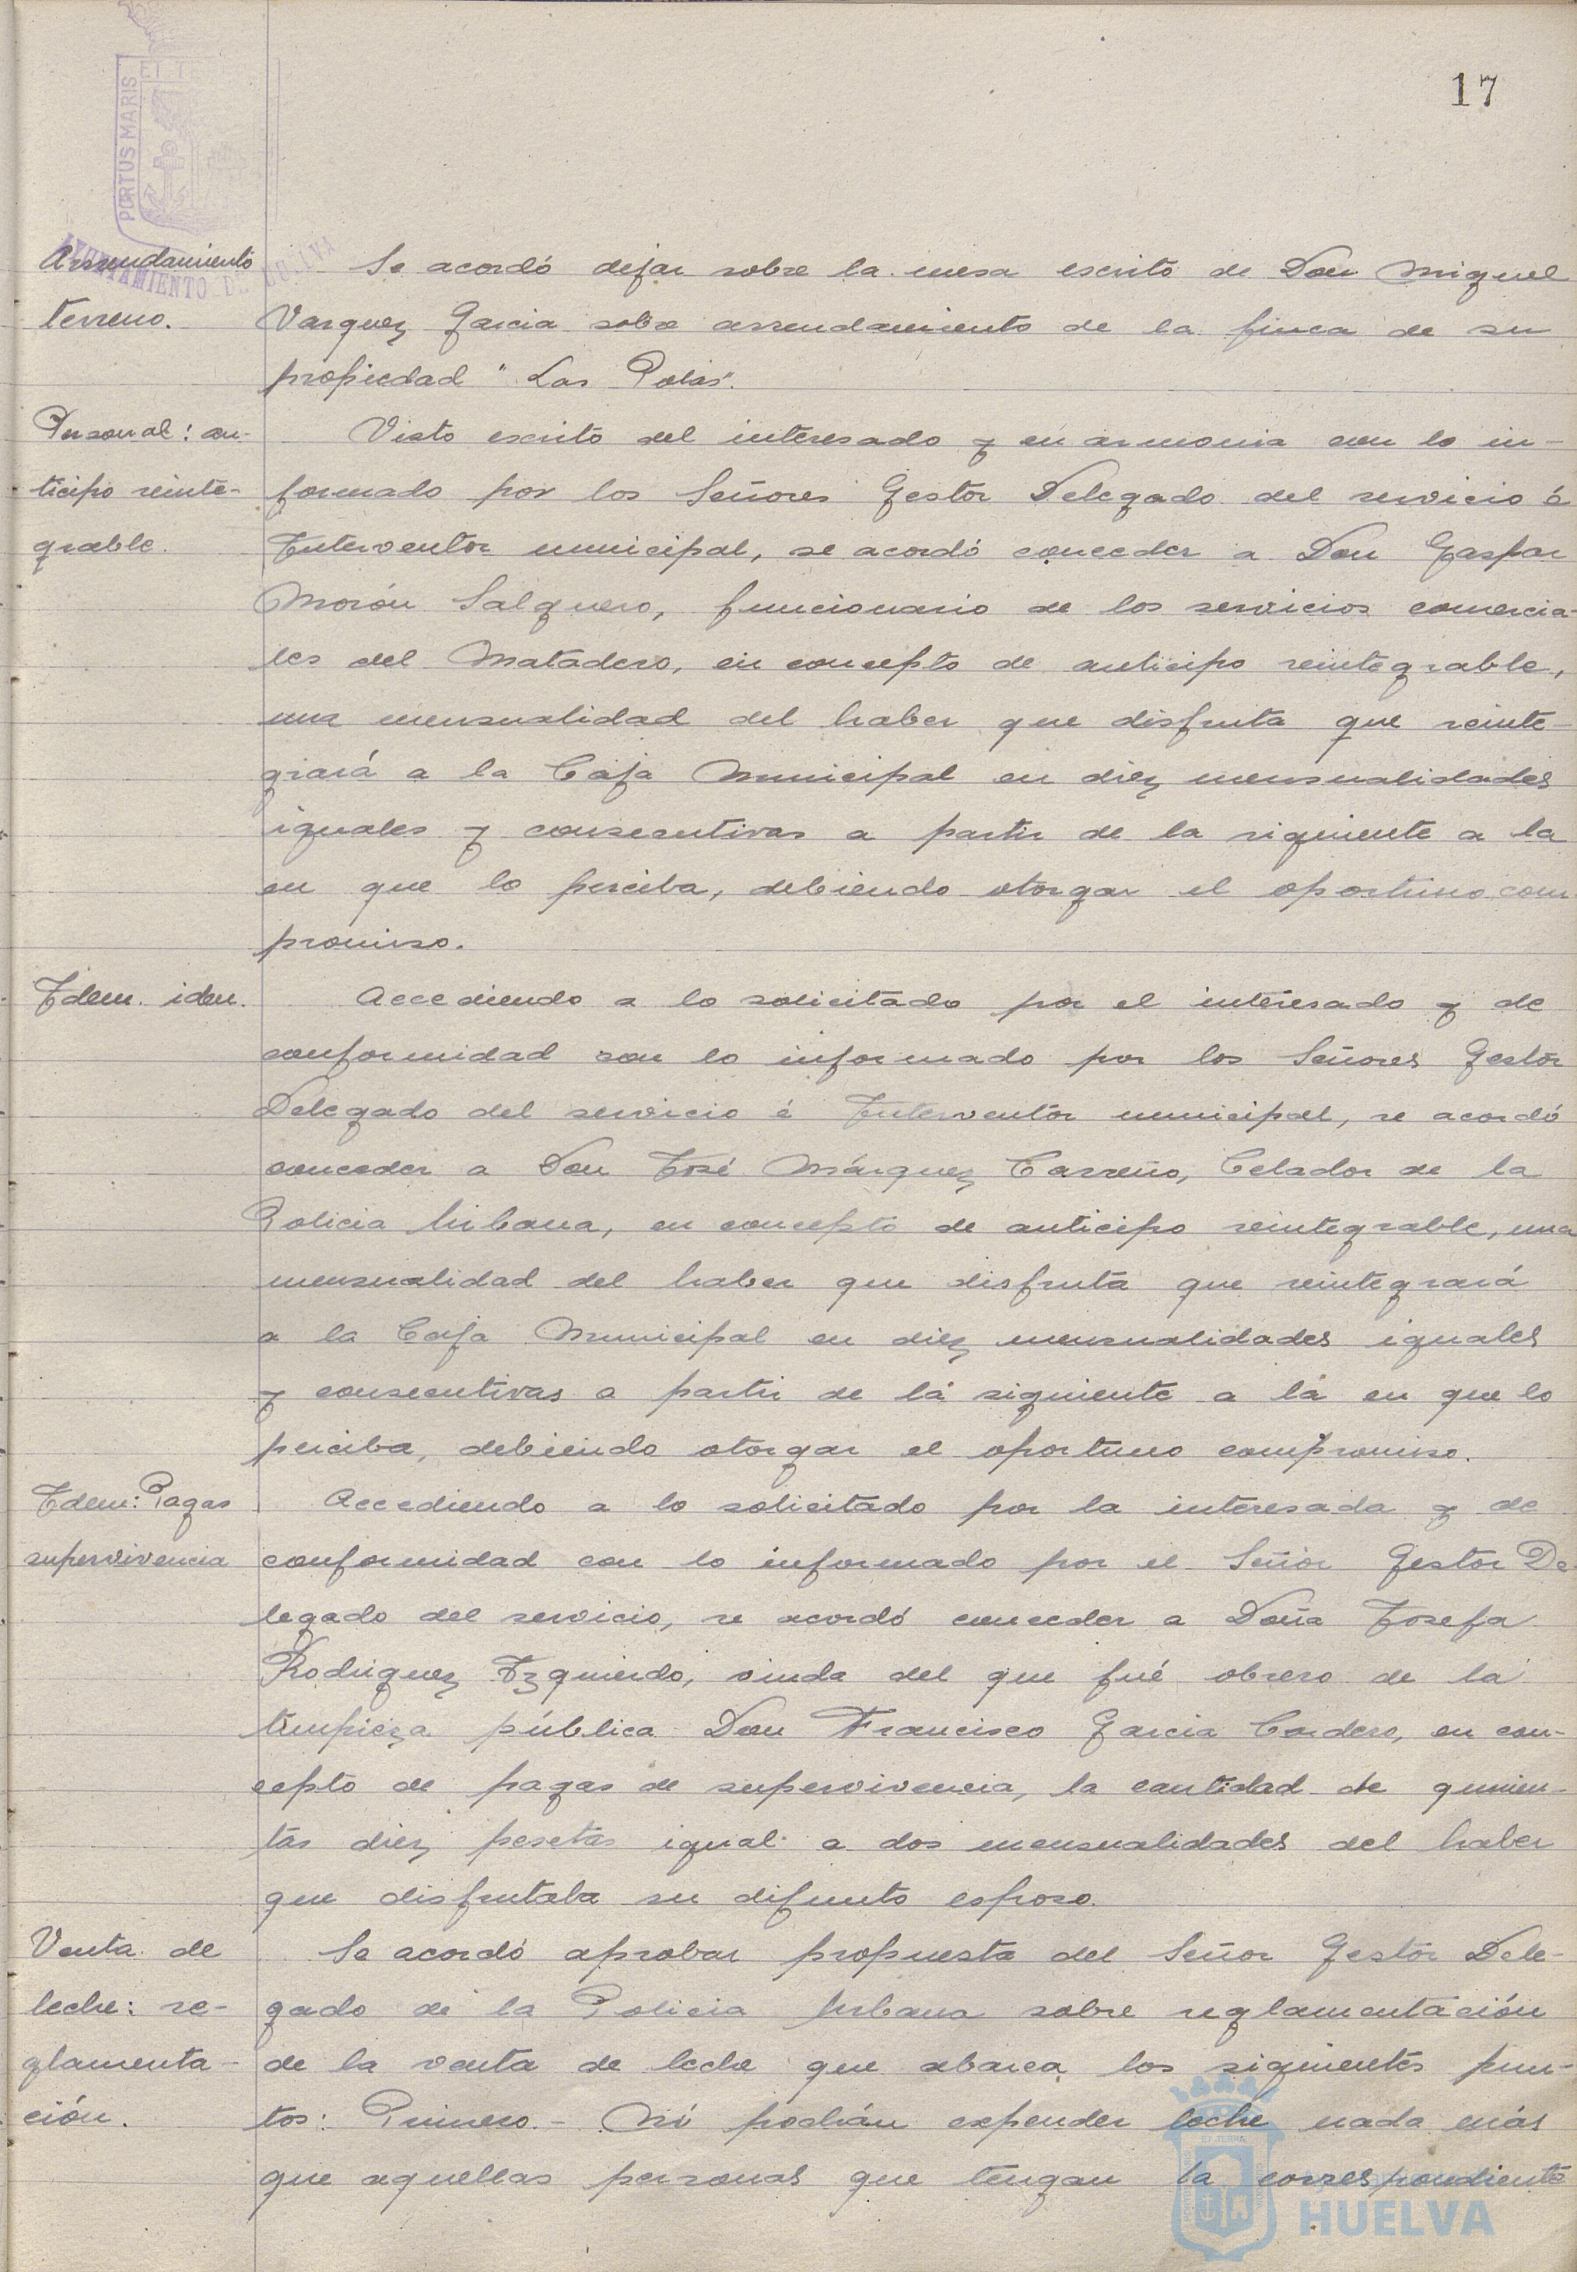 17
PORTUS MARIS
AYUNTAMIENTO DE HUELVA
Arrendamiento
terreno.
Se acordó dejar sobre la mesa escrito de Don Miguel
Varquez Garcia sobre arrendamiento de la finca de su
propiedad "Las Polas".
Personal: an-
ticipo reinte-
grable.
Visto escrito del interesado y en armonia con lo in-
formado por los Señores Gestor Delegado del servicio é
Interventor municipal, se acordó conceder a Don Gaspar
Morón Salguero, funcionario de los servicios comercia-
les del Matadero, en concepto de anticipo reintegrable,
una mensualidad del haber que disfruta que reinte-
grará a la Caja Municipal en diez mensualidades
iguales y consecutivas a partir de la siguiente a la
en que lo perciba, debiendo otorgar el oportuno com-
promiso.
Idem. idem.
Accediendo a lo solicitado por el interesado y de
conformidad con lo informado por los Señores Gestor
Delegado del servicio é Interventor municipal, se acordó
conceder a Don José Márquez Carreño, Celador de la
Policia Urbana, en concepto de anticipo reintegrable, una
mensualidad del haber que disfruta que reintegrará
a la Caja Municipal en diez mensualidades iguales
y consecutivas a partir de la siguiente a la en que lo
perciba, debiendo otorgar el oportuno compromiso.
Idem: Pagas
supervivencia
Accediendo a lo solicitado por la interesada y de
conformidad con lo informado por el Señor Gestor De-
legado del servicio, se acordó conceder a Doña Josefa
Rodriguez Izquierdo, viuda del que fué obrero de la
limpieza pública Don Francisco Garcia Cordero, en con-
cepto de pagas de supervivencia, la cantidad de quinien-
tas diez pesetas igual a dos mensualidades del haber
que disfrutaba su difunto esposo.
Venta de
leche: re-
glamenta-
ción.
Se acordó aprobar propuesta del Señor Gestor Dele-
gado de la Policia Urbana sobre reglamentación
de la venta de leche que abarca los siguientes pun-
tos: Primero.- No podrán expender leche nada más
que aquellas personas que tengan la correspondiente
HUELVA